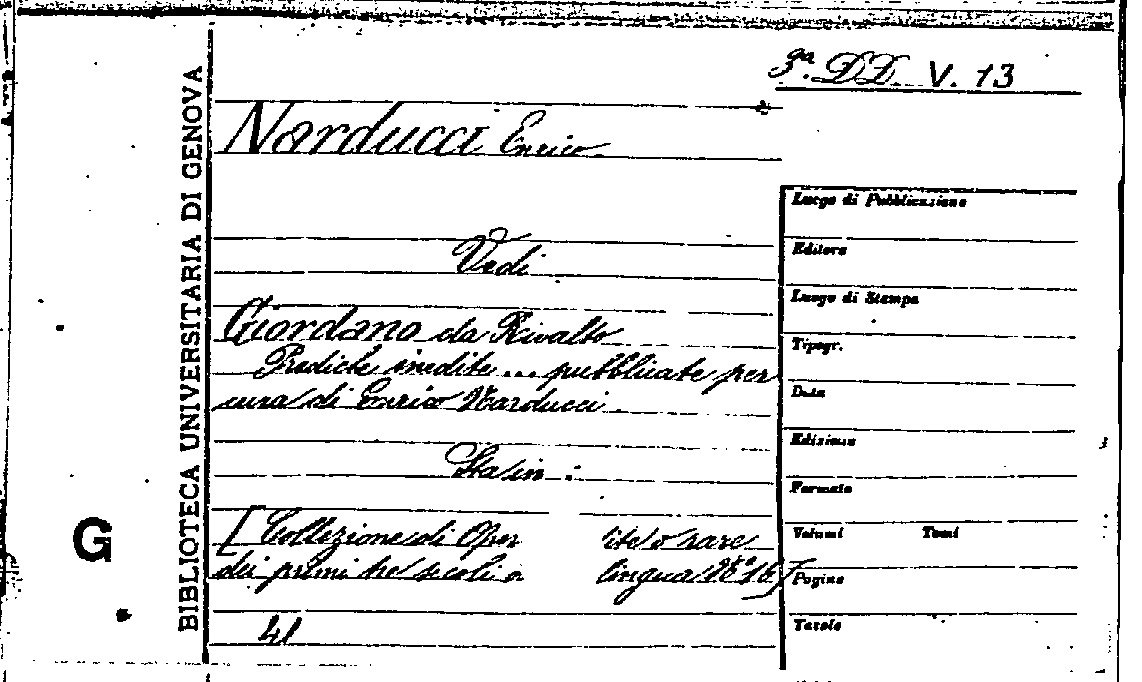 3ª. DD. V. 13
Narducci Enrico
Vedi
Giordano da Rivalto
Prediche inedite ... pubblicate per
cura di Enrico Narducci.
Sta in :
[Collezione di Oper ite o rare
dei primi tre secoli a lingua Nº 16]
41
BIBLIOTECA UNIVERSITARIA DI GENOVA
G
Luogo di Pubblicazione
Editore
Luogo di Stampa
Tipogr.
Data
Edizione
Formato
Volumi Tomi
Pagine
Tavole